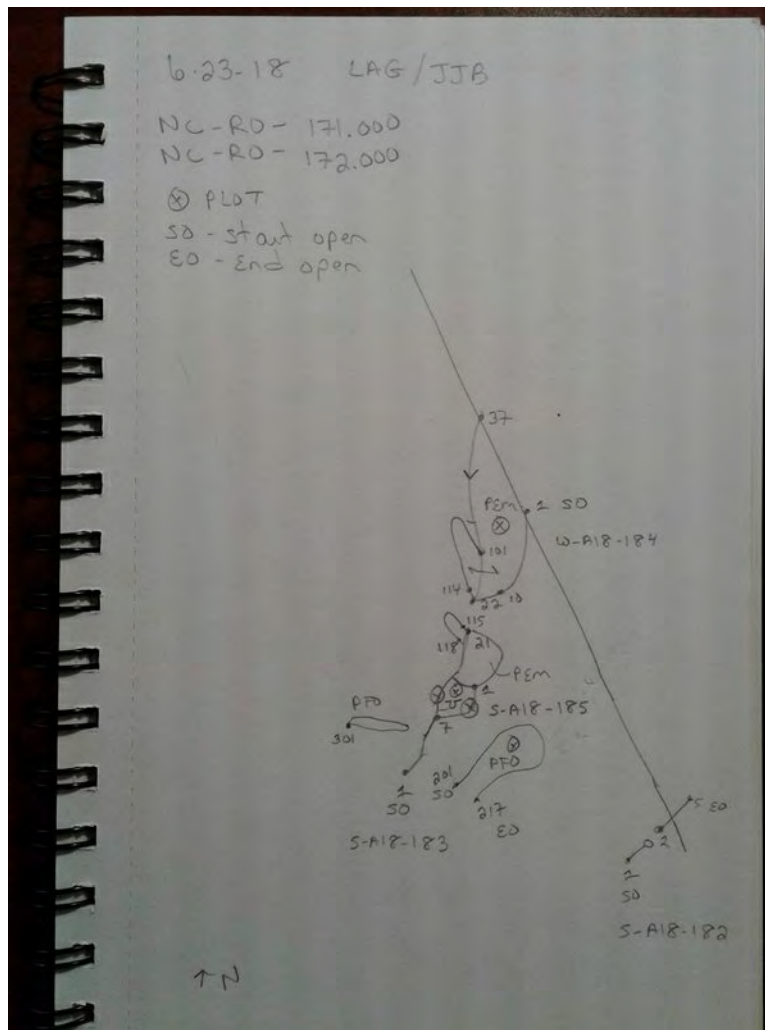 6-23-18 LAG/JJB
NC-RO- 171.000
NC-RO- 172.000
ⓧ PLOT
SO - start open
EO - End open
37
PEM
1 SO
W-A18-184
101
114
22
10
115
21
118
PEM
1
PFO
301
7
S-A18-185
PFO
1
SO
201
SO
217
EO
S-A18-183
5 EO
2
1
SO
S-A18-182
↑N